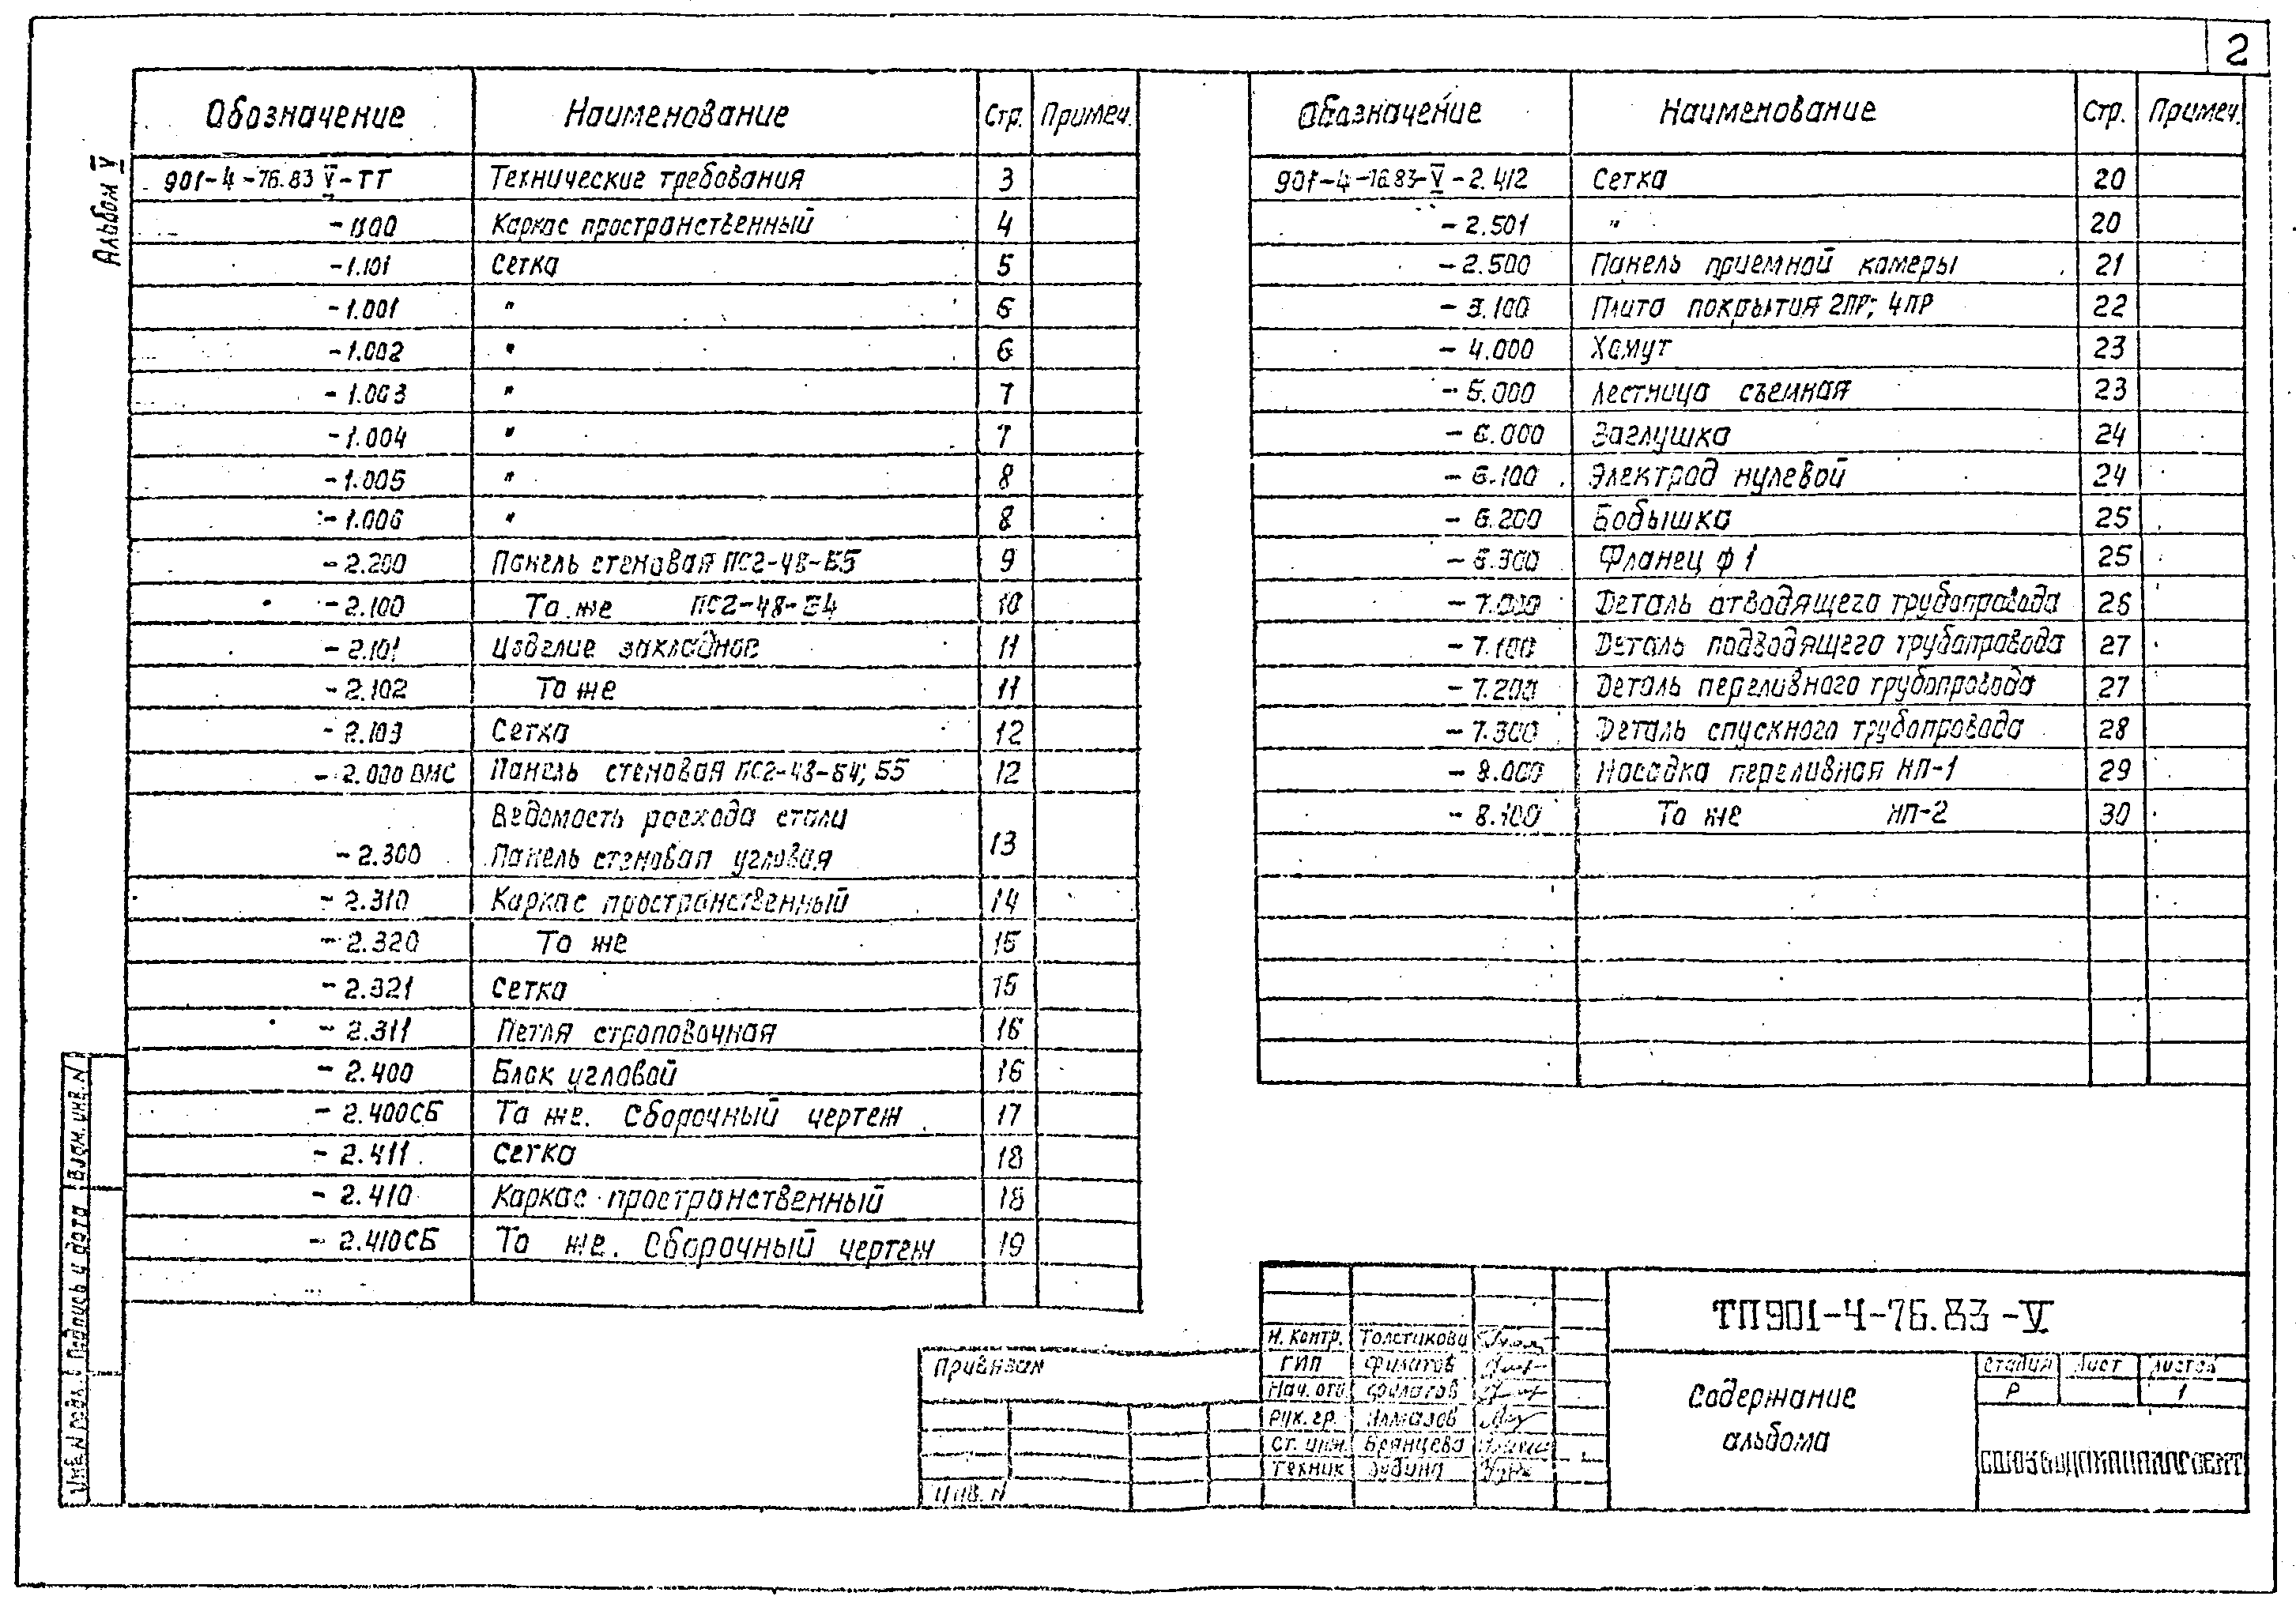 2
Альбом V
Обозначение Наименование Стр. Примеч.
901-4-76.83 V-ТТ Технические требования 3
Каркас пространственный 4
-1.101 Сетка 5
-1.001 " 6
-1.002 " 6
-1.003 " 7
-1.004 " 7
-1.005 " 8
-1.006 " 8
-2.200 Панель стеновая ПС2-48-Б5 9
-2.100 То же ПС2-48-Б4 10
-2.101 Изделие закладное 11
-2.102 То же 11
-2.103 Сетка 12
-2.000 ВМС Панель стеновая ПС2-48-Б4; Б5 12
Ведомость расхода стали
-2.300 Панель стеновая угловая 13
-2.310 Каркас пространственный 14
-2.320 То же 15
-2.321 Сетка 15
-2.311 Петля строповочная 16
-2.400 Блок угловой 16
-2.400СБ То же. Сборочный чертеж 17
-2.411 Сетка 18
-2.410 Каркас пространственный 18
-2.410СБ То же. Сборочный чертеж 19
Обозначение Наименование Стр. Примеч.
901-4-76.83-V-2.412 Сетка 20
-2.501 " 20
-2.500 Панель приемной камеры 21
-3.100 Плита покрытия 2ПР; 4ПР 22
-4.000 Хомут 23
-5.000 Лестница съемная 23
-6.000 Заглушка 24
-6.100 Электрод нулевой 24
-6.200 Бобышка 25
-6.300 Фланец ф1 25
-7.000 Деталь отводящего трубопровода 26
-7.100 Деталь подводящего трубопровода 27
-7.200 Деталь переливного трубопровода 27
-7.300 Деталь спускного трубопровода 28
-8.000 Насадка переливная НП-1 29
-8.100 То же НП-2 30
Инв. N подл. Подпись и дата Взам. инв. N
Привязан
Инв. N
Н. контр. Толстикова
ГИП Филатов
Нач. отд. Филатов
Рук. гр. Алмазов
Ст. инж. Брянцева
Техник Зудина
ТП901-4-76.83-V
Содержание
альбома
Стадия Лист Листов
Р 1
СОЮЗВОДОКАНАЛПРОЕКТ